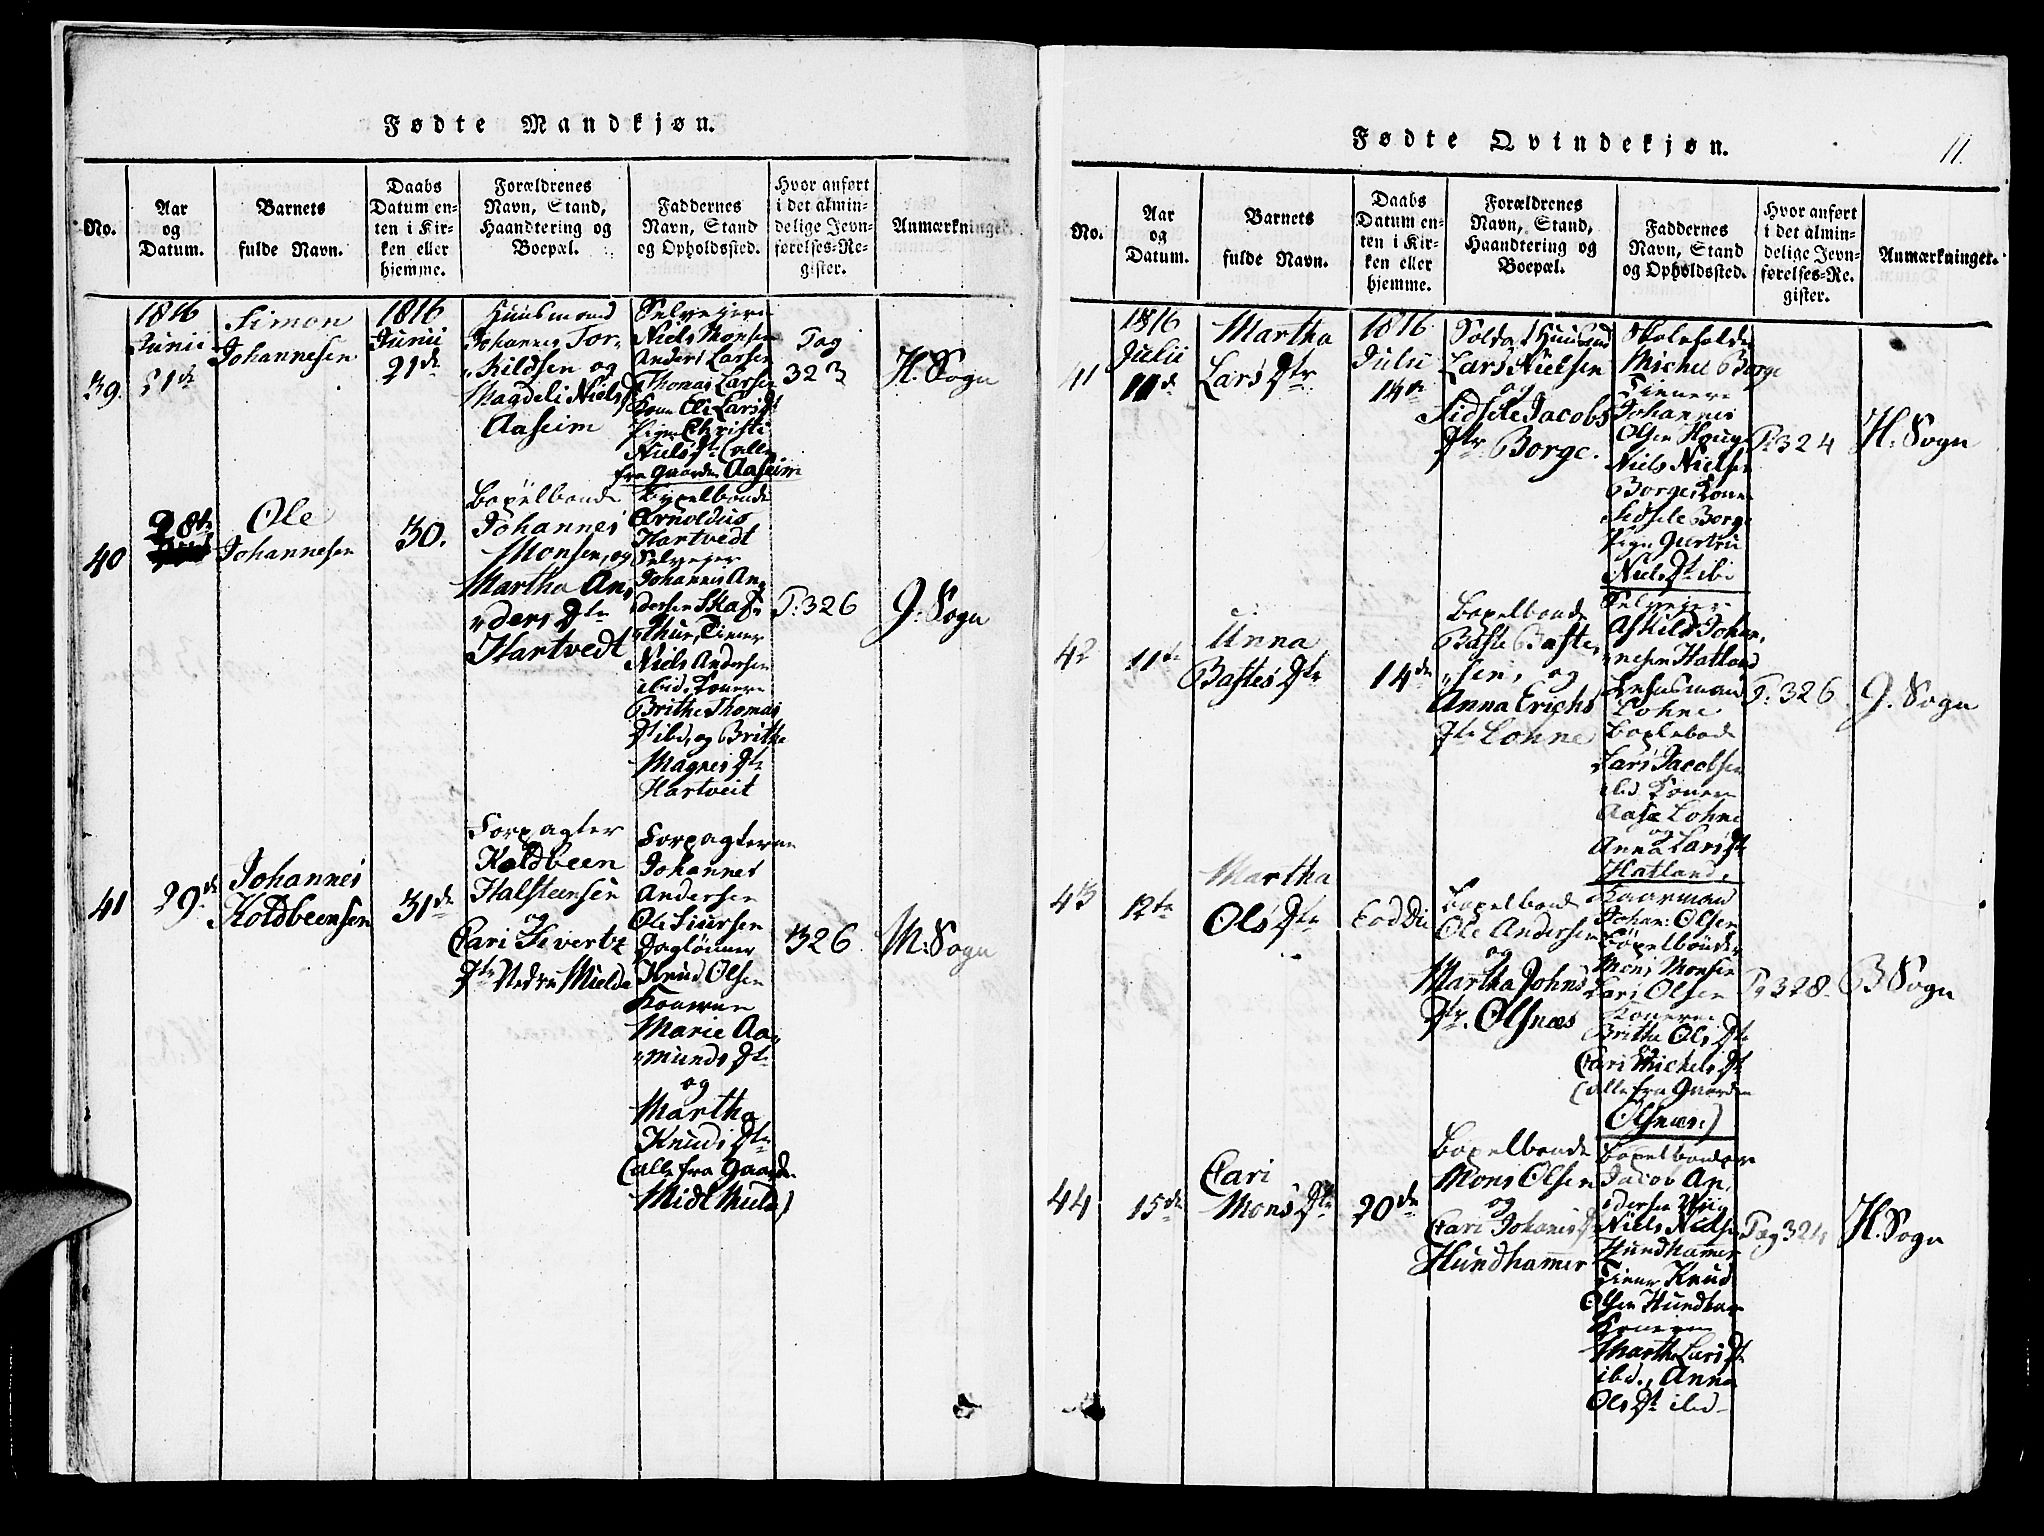 Fødte Mandkjøn.
No.
Aar
og
Datum.
Barnets
fulde Navn.
Daabs
Datum en-
ten i Kir-
ken eller
hjemme.
Forældrenes
Navn, Stand,
Haandtering og
Boepæl.
Faddernes
Navn, Stand
og Opholdssted.
Hvor anført
i det almin-
delige Jevn-
førelses-Re-
gister.
Anmærkninger.
39.
1816
Junii
21de
Simon
Johannesen
1816
Junii
21de
Huusmand
Johannes Tor-
kildsen og
Magdeli Niels
Aaseim
Selvejere
Niels Monsen
Anders Larsen
Thomas Larsen
Kone Eli Lars Dt
Pige Christi
Niels Dt (alle
fra Gaarden Aaseim
Pag
323
H. Sogn
40
28de
Ole
Johannesen
30.
Bøxelbonde
Johannes
Monsen, og
Martha An-
ders Dtr
Hartvedt
Bøxelbonde
Arnoldus
Hartvedt
Selvejer
Johannes An-
dersen Skaft-
thue, Tiener
Niels Andersen
ibid. Konerne
Brithe Thomas
Dt ibd, og Brithe
Magnes Dtr
Hartveit
P: 326
J. Sogn
41
29de
Johannes
Koldbeensen
31de
Forpagter
Koldbeen
Halsteensen
og
Cari Sivertz
Dtr Nedre Mielde
Forpagterne
Johannes
Andersen
Ole Siursen
Daglønner
Knud Olsen
Konerne
Marie Aa-
munds Dtr
og
Martha
Knuds Dtr
(alle fra Gaarden
Midt Mield)
326
M: Sogn
Fødte Qvindekjøn.
11.
No.
Aar
og
Datum.
Barnets
fulde Navn.
Daabs
Datum en-
ten i Kir-
ken eller
hjemme.
Forældrenes
Navn, Stand,
Haandtering og
Boepæl.
Faddernes
Navn, Stand
og Opholdssted.
Hvor anført
i det almin-
delige Jevn-
førelses-Re-
gister.
Anmærkninger.
41
1816
Julii
11de
Martha
Lars Dtr
1816
Julii
14de
Soldat
Lars Nielsen
og
Sidsele Jacobs
Dtr Borge.
Skoleholder
Michel Borge
Tienere
Johannes
Olsen Houge
Niels Nielsen
Borge, Kone
Sidsele Borge
Pige Gurtru
Niels Dt ibi.
P: 324
H. Sogn
42
11te
Anna
Bastes Dtr
14de
Bøxelbonde
Baste Baste-
sen, og
Anna Erichs
Dtr Lohne
Selvejer
Askild Johan-
nesen Hatland
Lehnsmand
Lohne
Lars Jacobsen
ibd Konerne
Aase Lohne
og
Anna Lars Dt
Hatland.
P: 326
J. Sogn
43
12te
Martha
Ols Dtr
Eod Die
Bøxelbonde
Ole Andersen
og
Martha Johns
Dtr. Olsnæs
Kaarmand
Johan: Olsen
Bøxelbønder
Mons Monsen
Lars Olsen
Konerne
Brithe Ols Dtr
og
Cari Michels Dt
(alle fra Gaarden
Olsnæs.)
Pag 328.
B Sogn
44
15de
Cari
Mons Dtr
20de
Bøxelbonde
Mons Olsen
og
Cari Johanes Dt
Hundhammer
Bøxelbonder
Jacob An-
dersen Wiig
Niels Nielsen
Hundhammer
Tiener Knud
Olsen Hundham
Konerne
Marthe Lars Dt
ibd., Anna
Ols Dt ibd
Pag 324
H. Sogn